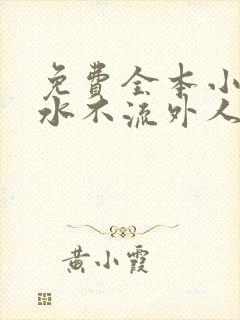 免費全本小
水不流外人
黄小霞